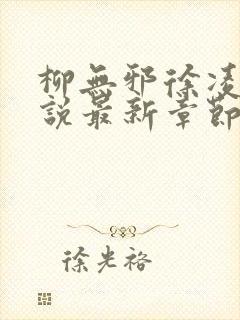 柳無邪徐凌
說最新章節
徐光裕